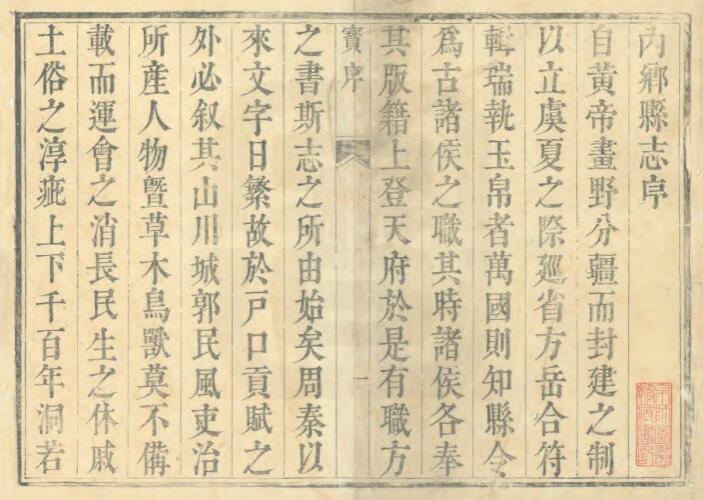 內鄉縣志序
自黃帝畫野分疆而封建之制
以立虞夏之際廵省方岳合符
輯瑞執玉帛者萬國則知縣令
爲古諸侯之職其時諸侯各奉
其版籍上登天府於是有職方
寶序
一
之書斯志之所由始矣周秦以
來文字日繁故於戸口貢賦之
外必叙其山川城郭民風吏治
所産人物暨草木鳥獸莫不備
載而運會之消長民生之休戚
土俗之淳疵上下千百年洞若